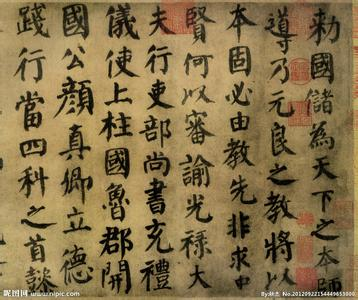 勅國儲為天下之本師
導乃元良之教將以
本固必由教先非求中
賢何以審諭光祿大
夫行吏部尚書充禮
儀使上柱國魯郡開
國公顏真卿立德
踐行當四科之首懿
昵图网 www.nipic.com
By:林杰 No:20120922154449653000